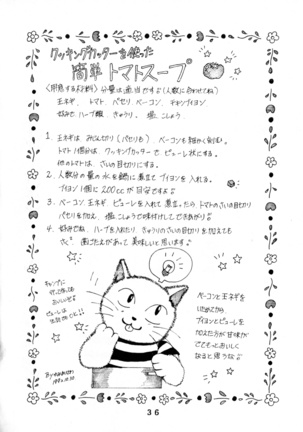 クッキングカッターを使った
簡単トマトスープ
〈用意する材料〉分量は適当です♪(人数に合わせてね)
玉ネギ、トマト、パセリ、ベーコン、チキンブイヨン
好みで、ハーブ類、きゅうり、塩、こしょう
1. 玉ネギは みじん切り(パセリも) ベーコンも細かく(刻む)。
トマト1個分は、クッキングカッターで ピューレ状にする。
他のトマトは、さいの目切りにする。
2. 人数分の量の水を鍋に沸立て ブイヨンを入れる。
ブイヨン1個に 200ccが目安です♪
3. ベーコン、玉ネギ ピューレを入れて 煮立ったら トマトのさいの目切り
パセリを加え、塩こしょうで味付けして できあがり♪
4. 好みでね、ハーブを入れたり、きゅうりのさいの目切りを加えても
歯ごたえがあって 美味しいと思います♪
キャンプに
おいしいぞ♪
ピューレは
ベーコンと玉ネギを
いためてから
ブイヨンとピューレを
加えた方が 甘味が
でてもっとおいしく
なると思うな♪
36